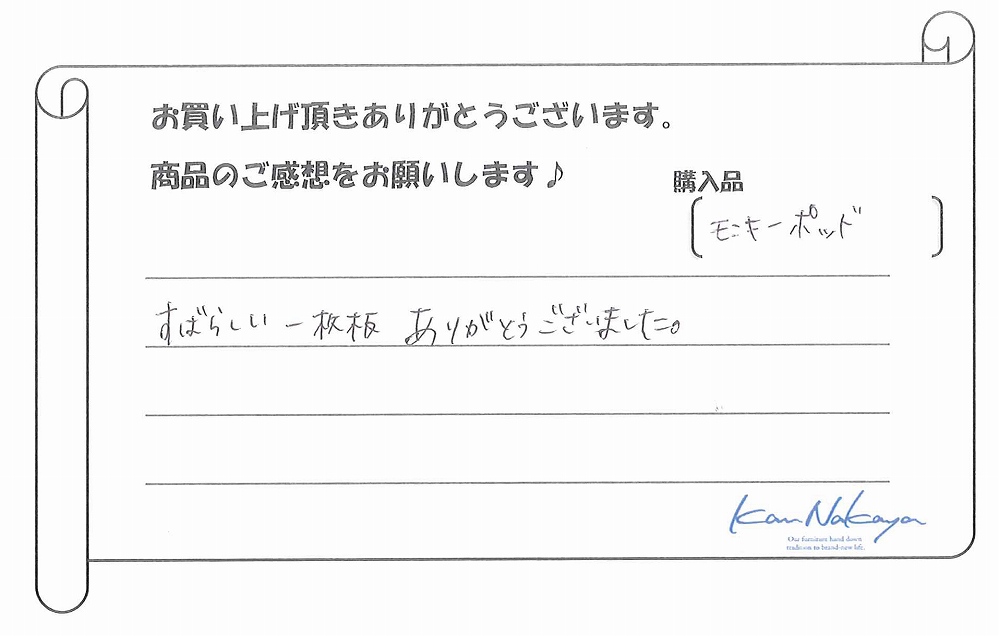 お買い上げ頂きありがとうございます。
商品のご感想をお願いします♪
購入品
モンキーポッド
すばらしい一枚板 ありがとうございました。
Kan Nakaya
Our furniture hand down
tradition to brand-new life.